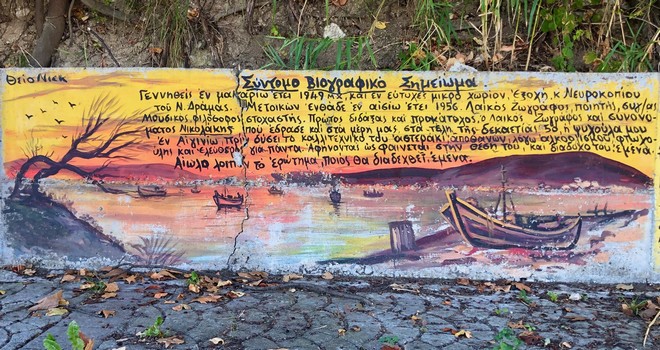 Θείο Nick
Σύντομο Βιογραφικό Σημείωμα
Γεννηθείς εν μακαρίω έτει 1949 μ.χ. και εν ευτυχεί μικρώ χωρίον, Εξοχή, κ. Νευροκοπίου
του Ν. Δράμας. Μετοικών ενθάδε εν αισίω έτει 1956. Λαϊκός Ζωγράφος, ποιητής, συγ/ας
Μουσικός φιλόσοφος στοχαστής. Πρώτο διδάξας και προκάτοχος, ο λαϊκός Ζωγράφο και συνονό
ματος Νικολάκης που έδρασε και στα μέρη μας, στα τέλη της δεκαετίας 50, η ψυχούλα μου
εν Αιγινίω πριν δύσει το καλλιτεχνικό του αστεράκι
ύλη και ελεύθερος για πάντα. Αφήνοντας ως φαίνεται στην θέση του, και διάδοχο του: εμένα.
Αίωλο λοιπόν το ερώτημα, ποιος θα διαδεχθεί: εμένα.